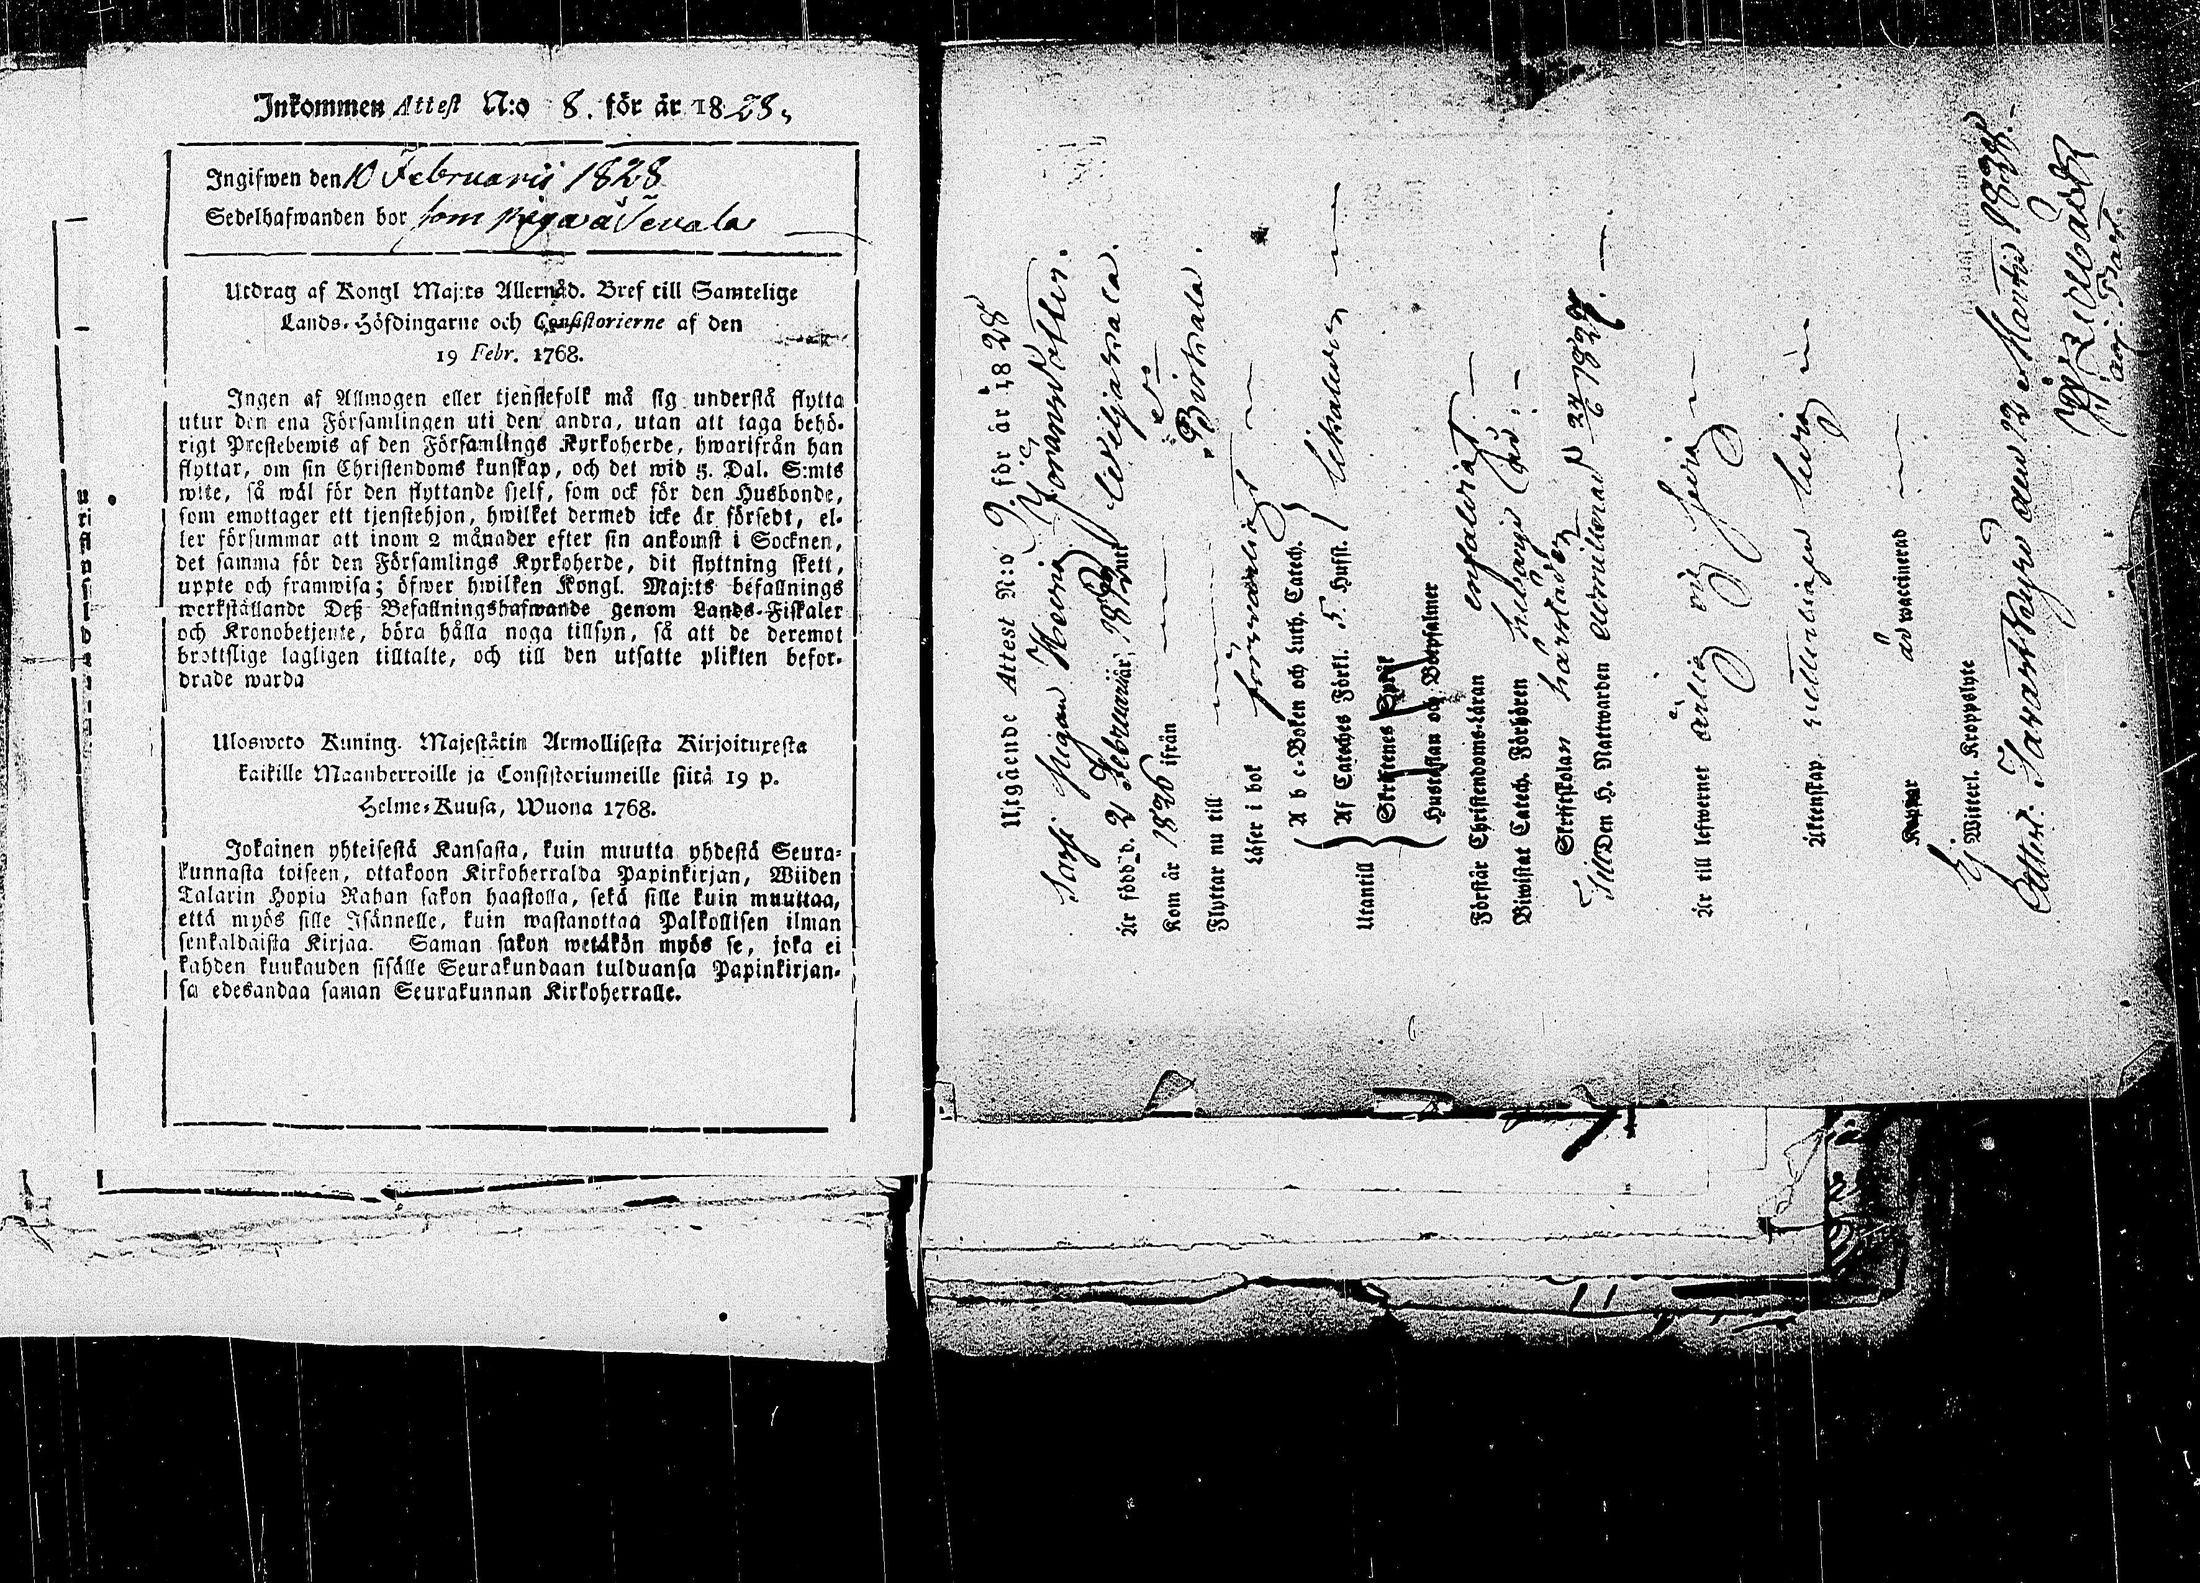 Inkommen Attest N:o 8. för år 1828,
Ingifwen den 10 Februarii 1828
Sedelhafwanden bor som piga å Tevala
Utdrag af Kongl Maj:ts Allernåd. Bref till Samtelige
Lands-Höfdingarne och Consistorierne af den
19 Febr. 1768.
Ingen af Allmogen eller tjenstefolk må sig understå flytta
utur den ena Församlingen uti den andra, utan att taga behö-
rigt Prestebewis af den Församlings Kyrkoherde, hwarifrån han
flyttar, om sin Christendoms kunskap, och det wid 5. Dal. S:mts
wite, så wäl för den flyttande sjelf, som ock för den Husbonde,
som emottager ett tjenstehjon, hwilket dermed icke är försedt, el-
ler försummar att inom 2 månader efter sin ankomst i Socknen,
det samma för den Församlings Kyrkoherde, dit flyttning skett,
uppte och framwisa; öfwer hwilken Kongl. Maj:ts befallnings
werkställande Deß Befallningshafwande genom Lands-Fiskaler
och Kronobetjente, böra hålla noga tillsyn, så att de deremot
brottslige lagligen tilltalte, och till den utsatte plikten befor-
drade warda
Ulosweto Kuning. Majestätin Armollisesta Kirjoituxesta
kaikille Maanherroille ja Consistoriumeille siitä 19 p.
Helme-Kuusa, Wuona 1768.
Jokainen yhteisestä Kansasta, kuin muutta yhdestä Seura-
kunnasta toiseen, ottakoon Kirkoherralda Papinkirjan, Wiiden
Talarin Hopia Rahan sakon haastolla, sekä sille kuin muuttaa,
että myös sille Isännelle, kuin wastanottaa Palkollisen ilman
senkaldaista Kirjaa. Saman sakon wetäkön myös se, joka ei
kahden kuukauden sisälle Seurakundaan tulduansa Papinkirjan-
sa edesandaa saman Seurakunnan Kirkoherralle.
Utgående Attest N:o 9. för år 1828
pigan Maria Johansdotter.
Är född d. 2 Februarii
Kom år 1826 ifrån
Flyttar nu till Birkala.
Läser i bok försvarligt
A b c-Boken och Luth. Catech.
Utantill Af Cateches Förkl. 5. Hufst. likaledes
Skriftenes Språk
Hustaflan och Botpsalmer
Förstår Christendoms-läran enfaldigt
Biwistat Catech. Förhören
Skriftskolan
Till Den H. Nattwarden admitterad 24/6 1827.
Är till lefwernet ärlig och
Äktenskap ledig
Koppor är waccinerad
Ej Witterl. Kroppslyte
den 12 Martii 1828.